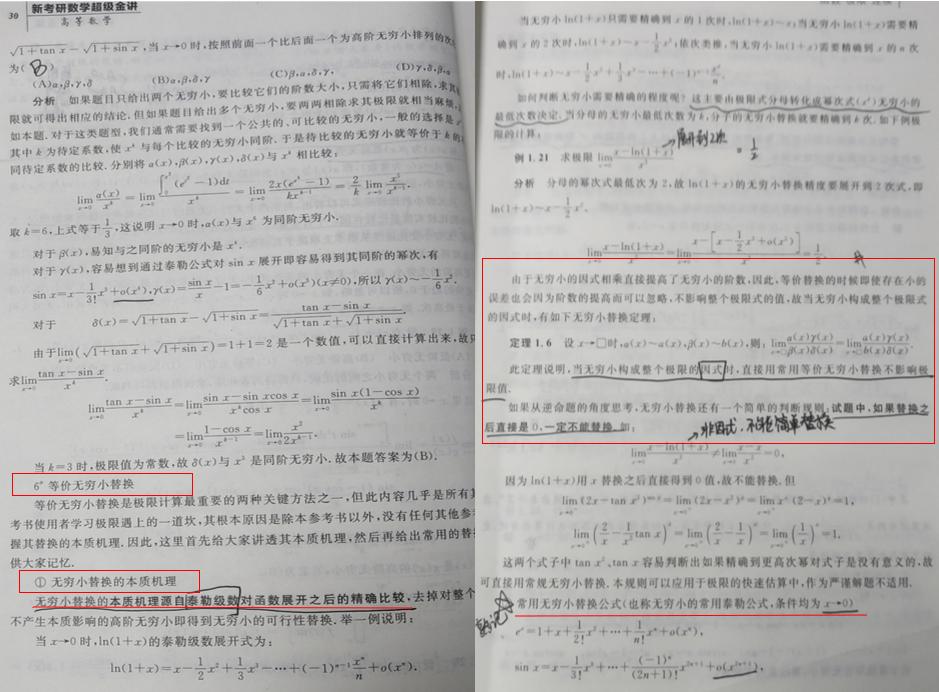 30
新考研数学超级金讲
高等数学
√(1+tan x) − √(1+sin x),当 x→0 时,按照前面一个比后面一个为高阶无穷小排列的次
为( B )
(A)α,β,γ,δ (B)α,β,δ,γ (C)β,α,δ,γ. (D)γ,δ,β,α
分析 如果题目只给出两个无穷小,要比较它们的阶数大小,只需将它们相除,求其
限就可得出相应的结论.但如果题目给出多个无穷小,要两两相除求其极限就相当麻烦,
如本题.对于这类题型,我们通常需要找到一个公共的、可比较的无穷小,一般的选择是
其中 k 为待定系数,使 xᵏ 与每个比较的无穷小同阶.于是待比较的无穷小就等价于 k 的
同待定系数的比较.分别将 α(x),β(x),γ(x),δ(x)与 xᵏ 相比较:
取 k=6,上式等于 1/3,这说明 x→0 时,α(x)与 x⁶ 为同阶无穷小.
对于 β(x),易知与之同阶的无穷小是 x⁴.
对于 γ(x),容易想到通过泰勒公式对 sin x 展开即容易得到其同阶的幂次,有
sin x=x−(1/3!)x³+o(x³),γ(x)=sin x/x−1=−(1/6)x²+o(x²)(x≠0),所以 γ(x)~−(1/6)x².
对于 δ(x)=√(1+tan x)−√(1+sin x)=(tan x−sin x)/(√(1+tan x)+√(1+sin x)).
由于lim(x→0)(√(1+tan x)+√(1+sin x))=1+1=2 是一个数值,可以直接计算出来,故只
求lim(x→0)(tan x−sin x)/xᵏ.
lim(x→0)(tan x−sin x)/xᵏ=lim(x→0)(sin x−sin xcos x)/(xᵏcos x)=lim(x→0)sin x(1−cos x)/xᵏ
=lim(x→0)(1−cos x)/xᵏ⁻¹=lim(x→0)x²/(2xᵏ⁻¹).
当 k=3 时,极限值为常数,故 δ(x)与 x³ 是同阶无穷小.故本题答案为(B).
6° 等价无穷小替换
等价无穷小替换是极限计算最重要的两种关键方法之一,但此内容几乎是所有
考书使用者学习极限遇上的一道坎,其根本原因是除本参考书以外,没有任何其他参
握其替换的本质机理.因此,这里首先给大家讲透其本质机理,然后再给出常用的替
供大家记忆.
① 无穷小替换的本质机理
无穷小替换的本质机理源自泰勒级数对函数展开之后的精确比较,去掉对整个
不产生本质影响的高阶无穷小即得到无穷小的可行性替换.举一例说明:
当 x→0 时,ln(1+x)的泰勒级数展开式为:
ln(1+x)=x−(1/2)x²+(1/3)x³−⋯+(−1)ⁿ⁻¹xⁿ/n+o(xⁿ).
当无穷小 ln(1+x)只需要精确到 x 的1次时,ln(1+x)~x;当无穷小 ln(1+x)需要精
确到 x 的2次时,ln(1+x)~x−(1/2)x²;依次类推,当无穷小 ln(1+x)需要精确到 x 的 n 次
时,ln(1+x)~x−(1/2)x²+(1/3)x³−⋯+(−1)ⁿ⁻¹xⁿ/n.
如何判断无穷小需要精确的程度呢?这主要由极限式分母转化成幂次式(xᵏ)无穷小的
最低次数决定.当分母的无穷小最低次数为 k,分子的无穷小替换就要精确到 k 次.如下例极
限的计算:
展开到2次
例 1.21 求极限 lim(x→0)(x−ln(1+x))/x². = 1/2
分析 分母的幂次式最低次为 2,故 ln(1+x)的无穷小替换精度要展开到 2 次式,即
ln(1+x)~x−(1/2)x².
lim(x→0)(x−ln(1+x))/x²=lim(x→0)(x−[x−(1/2)x²+o(x²)])/x²=1/2.
由于无穷小的因式相乘直接提高了无穷小的阶数,因此,等价替换的时候即使存在小的
误差也会因为阶数的提高而可以忽略,不影响整个极限式的值,故当无穷小构成整个极限式
的因式时,有如下无穷小替换定理:
定理 1.6 设 x→□时,α(x)~a(x),β(x)~b(x),则:lim(x→□)α(x)γ(x)/(β(x)δ(x))=lim(x→□)a(x)γ(x)/(b(x)δ(x)).
此定理说明,当无穷小构成整个极限的因式时,直接用常用等价无穷小替换不影响极
限值.
如果从逆命题的角度思考,无穷小替换还有一个简单的判断规则:试题中,如果替换之
后直接是 0,一定不能替换.如:
非因式,不能简单替换
lim(x→0)(x−ln(1+x))/x²≠lim(x→0)(x−x)/x²=0,
因为 ln(1+x)用 x 替换之后直接得到 0 值,故不能替换.但
这两个式子中 tan x²、tan x 容易判断出如果精确到更高次幂对式子是没有意义的,故
可直接用常规无穷小替换.本规则可以应用于极限的快速估算中,作为严谨解题不适用.
常用无穷小替换公式(也称无穷小的常用泰勒公式,条件均为 x→0)
eˣ=1+x+(1/2!)x²+⋯+(1/n!)xⁿ+o(xⁿ),
sin x=x−(1/3!)x³+⋯+((−1)ⁿ/(2n+1)!)x²ⁿ⁺¹+o(x²ⁿ⁺¹),